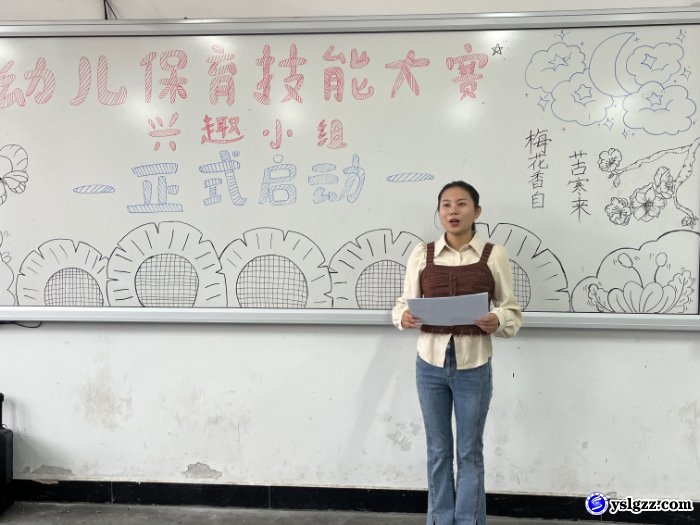 幼儿保育技能大赛
兴趣小组
正式启动
梅花香自
苦寒来
yslgzz.com